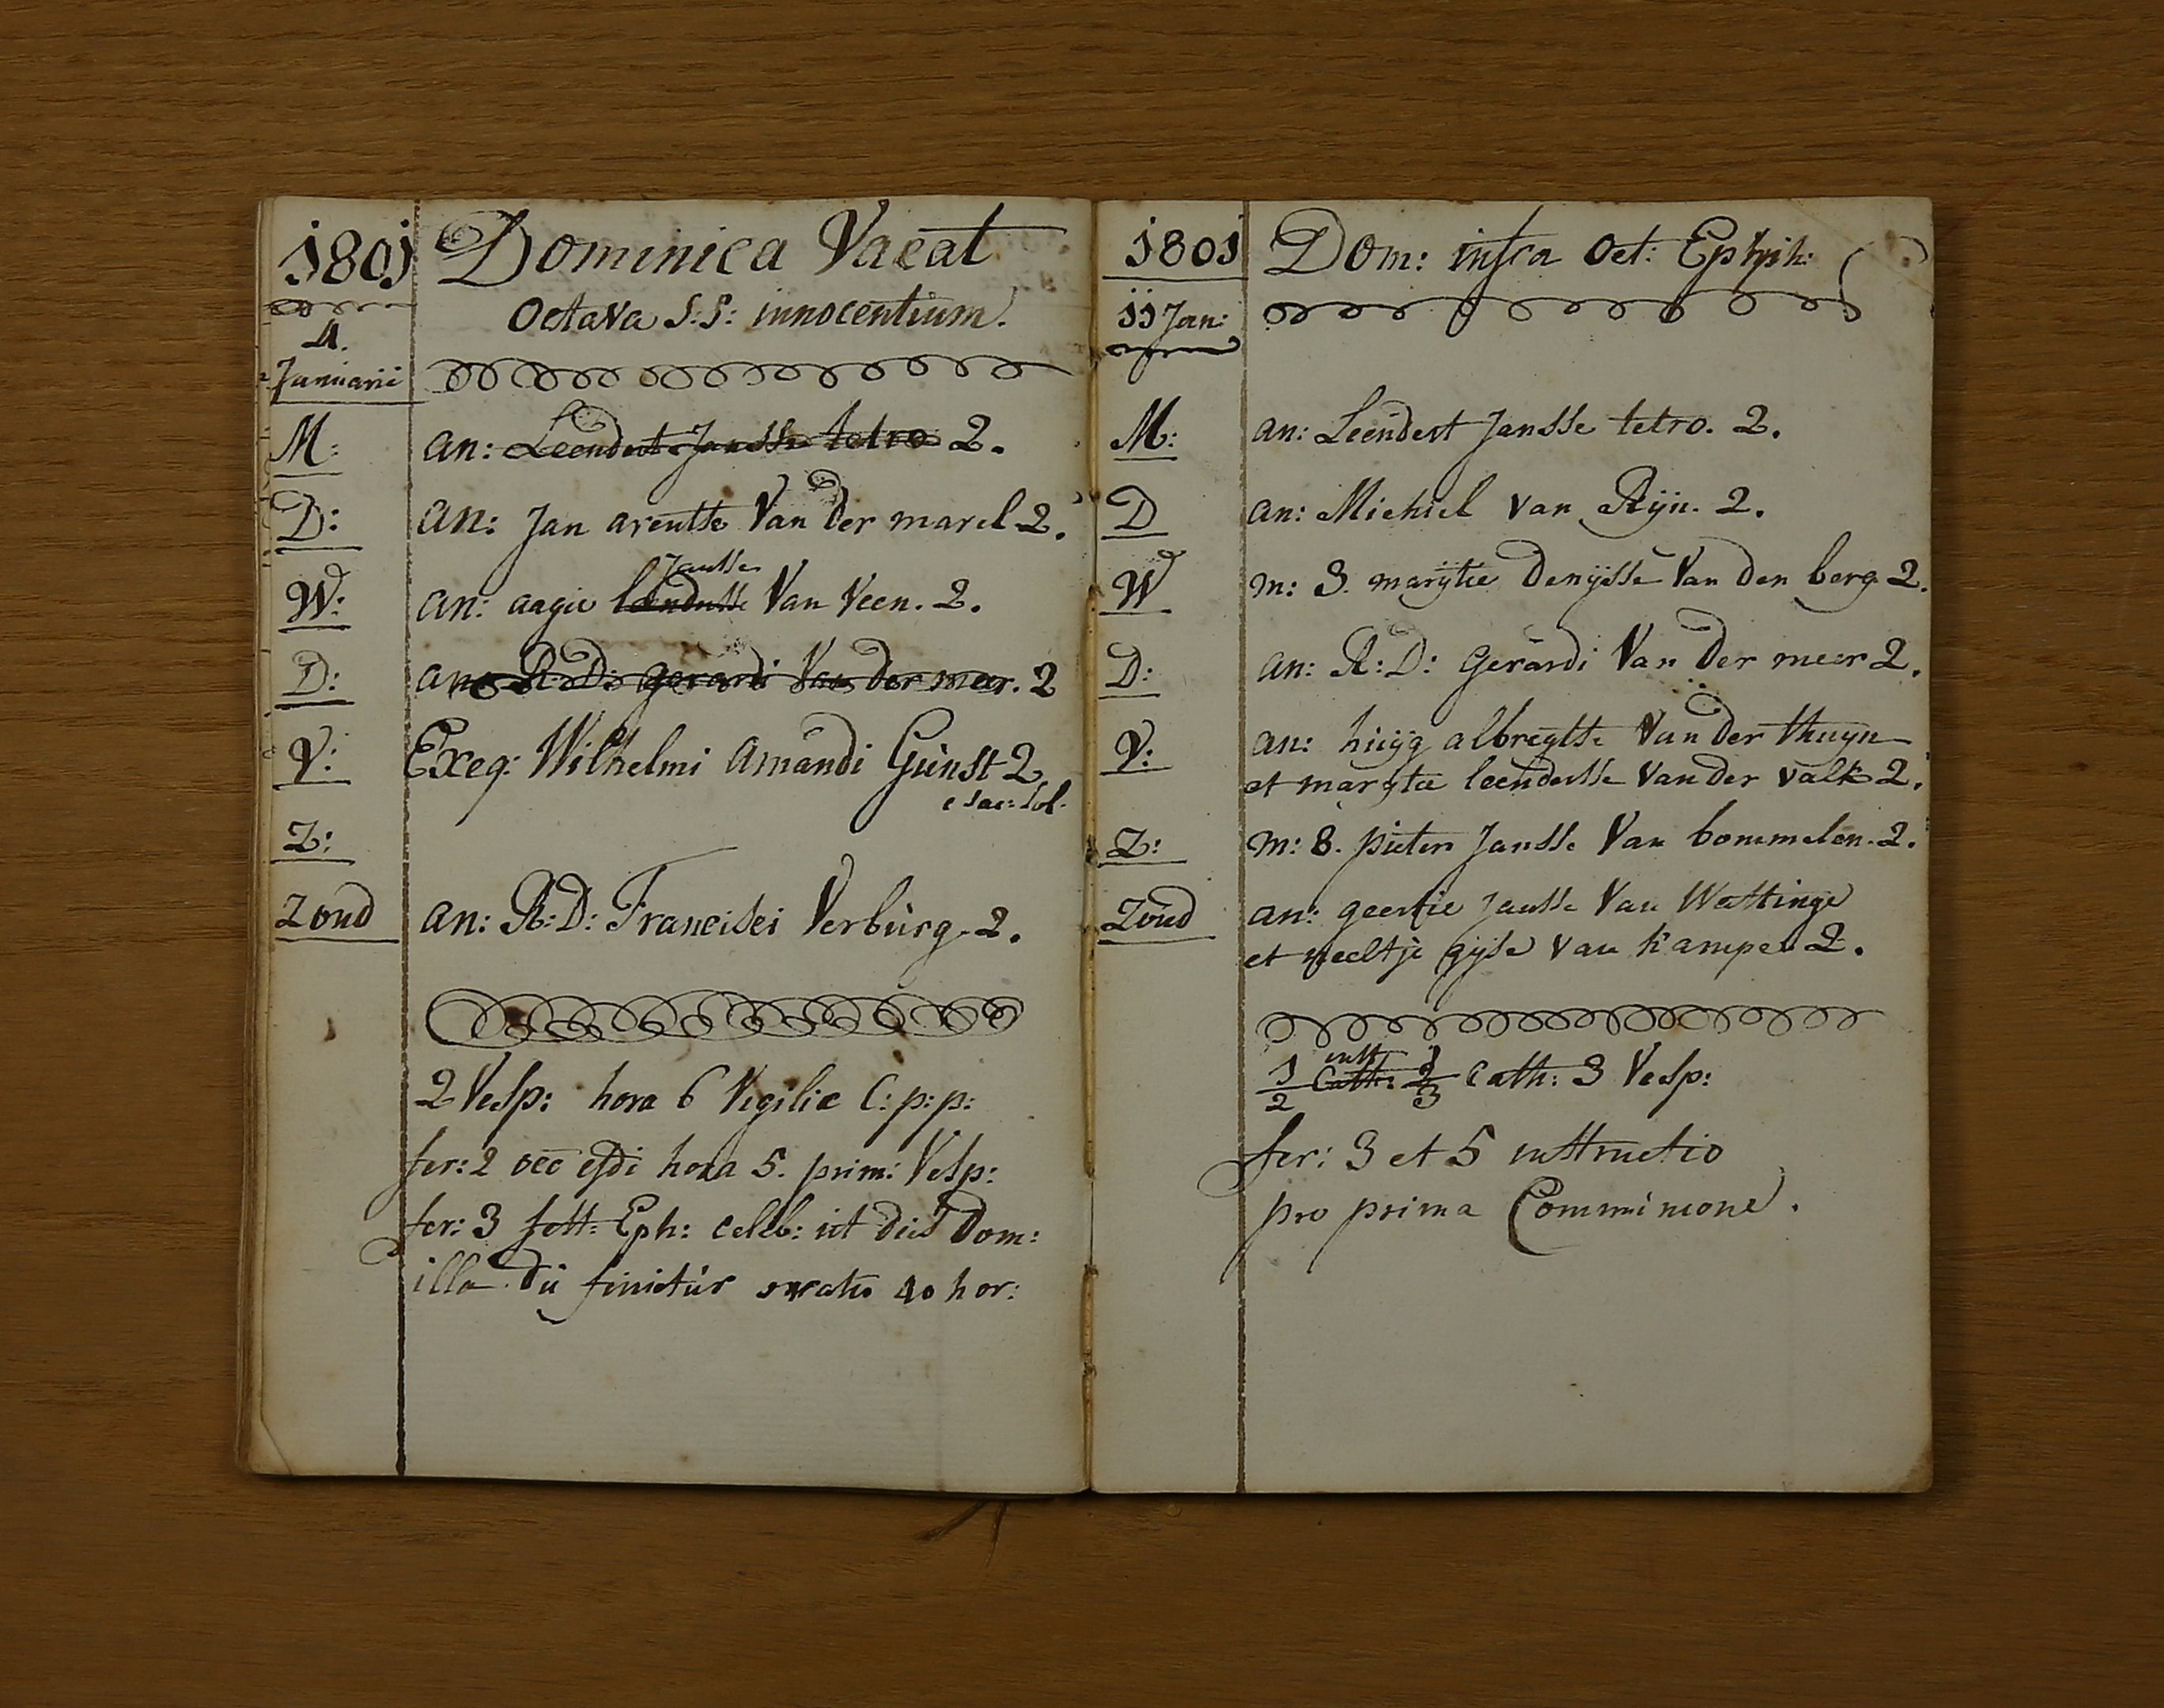 1801 Dominica Vacat
Octava S:S: innocentium.
4.
Januarii
M: an: Leendert Jansse tetro 2.
D: an: Jan arentse Van der marel 2.
Jansse
W: an: aagie Van Veen. 2.
D: an: R: D: gerardi Van der meer. 2
V: Exeq: Wilhelmi Amandi Gunst 2
Sac: Sol.
Z:
Zond an: R: D: Francisci Verburg. 2.
2 Vesp: hora 6 Vigiliæ C: p: p:
fer: 2 hora 5. prim: Vesp:
fer: 3 fest: Eph: celeb: ut dies Dom:
illa die finitur oratio 40 hor:
1801 Dom: infra Oct: Epiph:
11 Jan:
M: an: Leendert Jansse tetro. 2.
D an: Michiel van Rijn. 2.
W m: 3. marijtie Denijsse Van den berg 2.
D: an: R: D: Gerardi Van der meer 2.
V: an: huijg albregtse Van der thuyn
et marytie leendertse Van der valk 2.
Z: m: 8. pieter Jansse Van bommelen. 2.
Zond an: geertie Jansse Van Wattinge
et neeltje gijse van kampen 2.
inst
1/2 Cath: 2/3 Cath: 3 Vesp:
fer: 3 et 5 instructio
pro prima Communione.